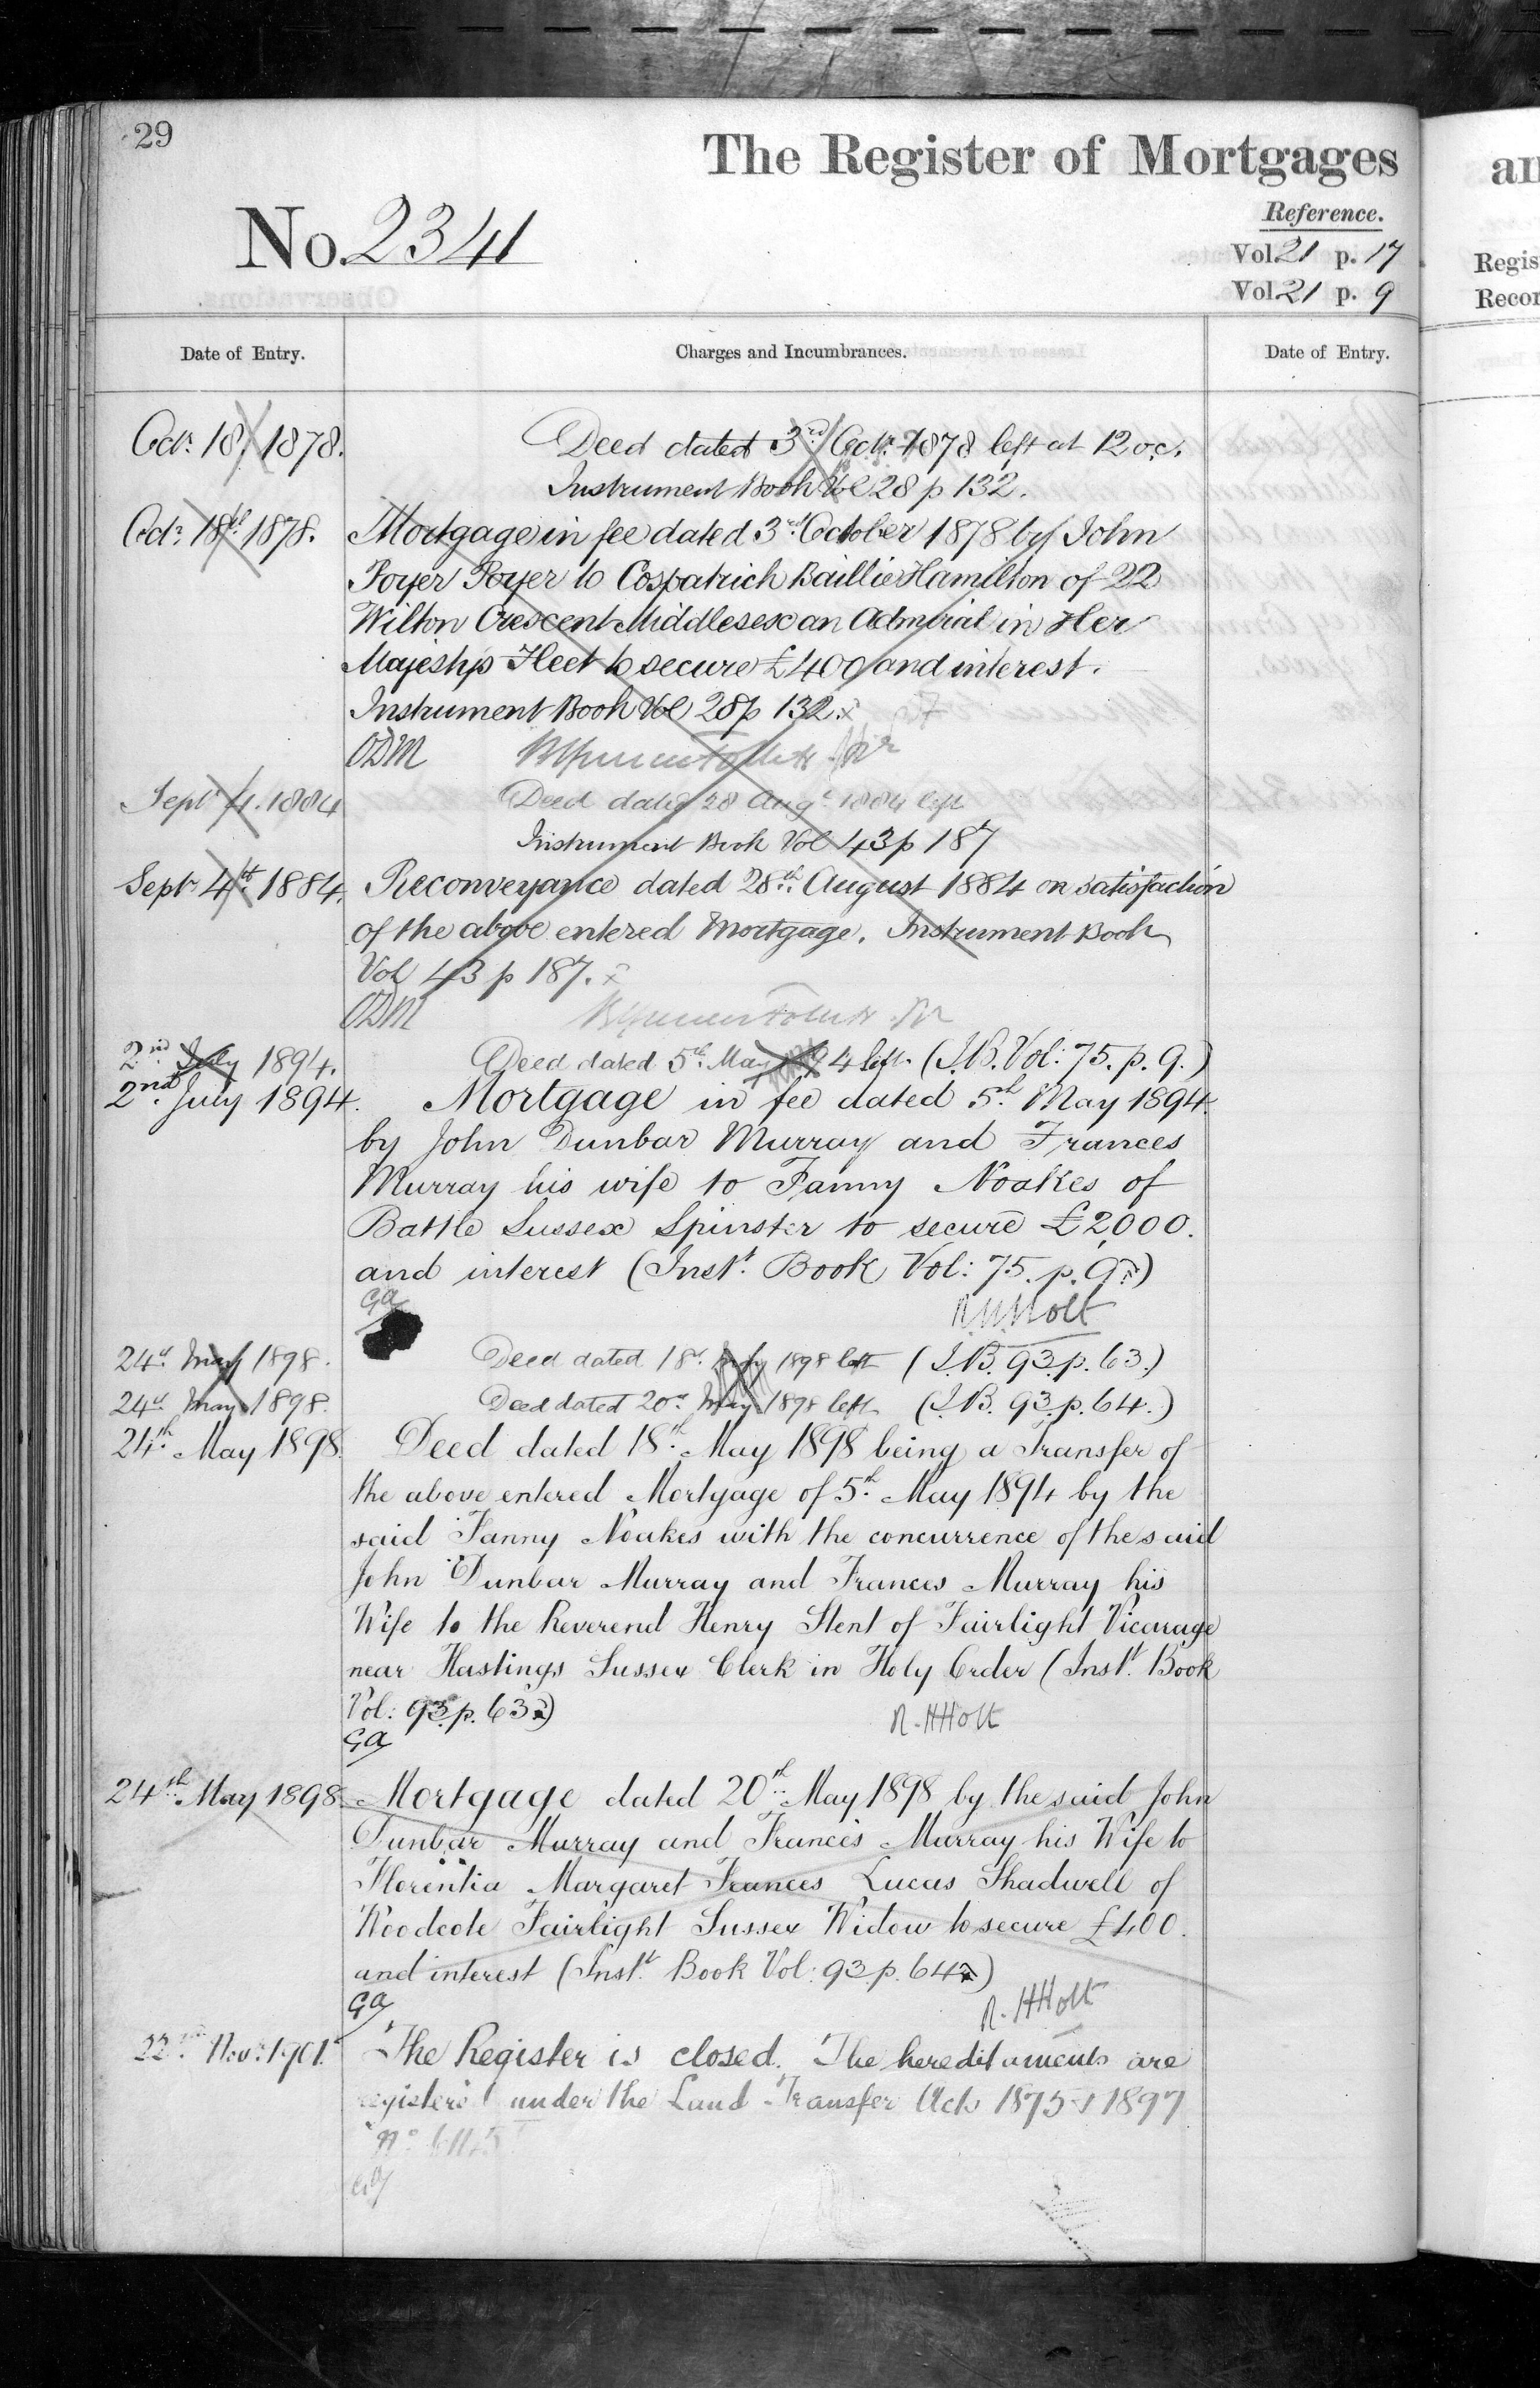 29
The Register of Mortgages
No. 2341
Reference.
Vol 21 p. 17
Vol 21 p. 9
Date of Entry.
Charges and Incumbrances.
Date of Entry.
Octr. 18, 1878. Deed dated 3rd Octr. 1878 left at 12 o,c.
Instrument Book Vol 28 p 132.
Octr. 18th 1878. Mortgage in fee dated 3rd October 1878 by John
Poyer Poyer to Cospatrick Baillie Hamilton of 22
Wilton Crescent Middlesex an Admiral in Her
Majestys Fleet to secure £400 and interest.
Instrument Book Vol 28 p 132.
ODM
Septr 4. 1884 Deed dated 28 Augt 1884 left
Instrument Book Vol 43 p 187
Septr 4th 1884. Reconveyance dated 28th August 1884 on satisfaction
of the above entered Mortgage. Instrument Book
Vol 43 p 187.
ODM
2nd July 1894. Deed dated 5th May 94 left. (I.B. Vol: 75. p. 9.)
2nd July 1894. Mortgage in fee dated 5th May 1894.
by John Dunbar Murray and Frances
Murray his wife to Fanny Noakes of
Battle Sussex Spinster to secure £2,000.
and interest (Instt. Book Vol: 75. p. 9.)
GA
R.H.Holt
24th May 1898. Deed dated 18th May 1898 left (I.B. 93. p. 63.)
24th May 1898. Deed dated 20th May 1898 left (I.B. 93. p. 64.)
24th May 1898. Deed dated 18th May 1898 being a Transfer of
the above entered Mortgage of 5th May 1894 by the
said Fanny Noakes with the concurrence of the said
John Dunbar Murray and Frances Murray his
Wife to the Reverend Henry Stent of Fairlight Vicarage
near Hastings Sussex Clerk in Holy Order (Instt. Book
Vol: 93. p. 63)
R.HHolt
GA
24th May 1898. Mortgage dated 20th May 1898 by the said John
Dunbar Murray and Frances Murray his Wife to
Florentia Margaret Frances Lucas Shadwell of
Woodcote Fairlight Sussex Widow to secure £400.
and interest (Instt. Book Vol: 93. p. 64)
GA
R.HHolt
22nd Novr. 1901. The Register is closed. The hereditaments are
registered under the Land Transfer Acts 1875 & 1897
No
GA
an
Regis
Recor